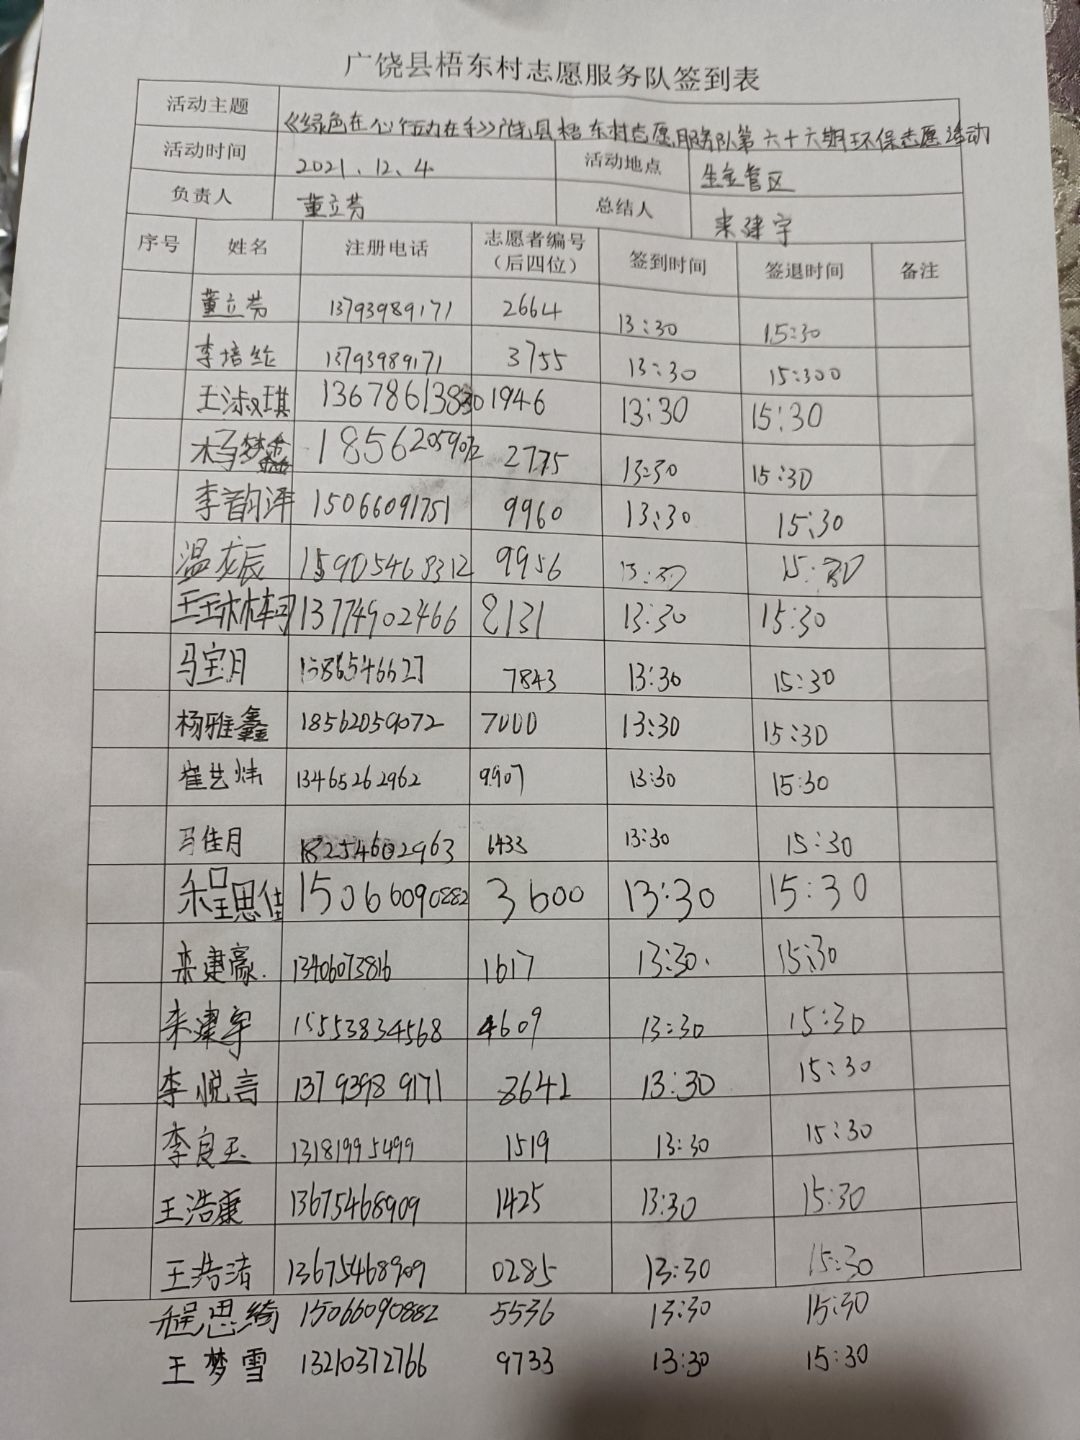 广饶县梧东村志愿服务队签到表
活动主题 《绿色在心行动在手》广饶县梧东村志愿服务队第六十六期环保志愿活动
活动时间 2021.12.4 活动地点 生金管区
负责人 董立芳 总结人 栾建宇
序号 姓名 注册电话 志愿者编号（后四位） 签到时间 签退时间 备注
董立芳 13793989171 2664 13:30 15:30
李培纶 13793989171 3755 13:30 15:300
王淑琪 13678613830 1946 13:30 15:30
18562059072 2775 13:30 15:30
李韵泽 15066091751 9960 13:30 15:30
温龙辰 15905468312 9956 13:30 15:30
13774902466 8131 13:30 15:30
马宝月 1586546627 7843 13:30 15:30
杨雅鑫 18562059072 7000 13:30 15:30
崔艺炜 13465262962 9907 13:30 15:30
马佳月 18254602963 6433 13:30 15:30
程思佳 15066090882 3600 13:30 15:30
栾建豪. 13406073816 1617 13:30. 15:30
栾建宇 15553834568 4609 13:30 15:30
李悦言 13793989171 8641 13:30 15:30
李良玉 13181995499 1519 13:30 15:30
王浩康 13675468909 1425 13:30 15:30
王浩清 13675468909 0285 13:30 15:30
程思绮 15066090882 5536 13:30 15:30
王梦雪 13210372766 9733 13:30 15:30